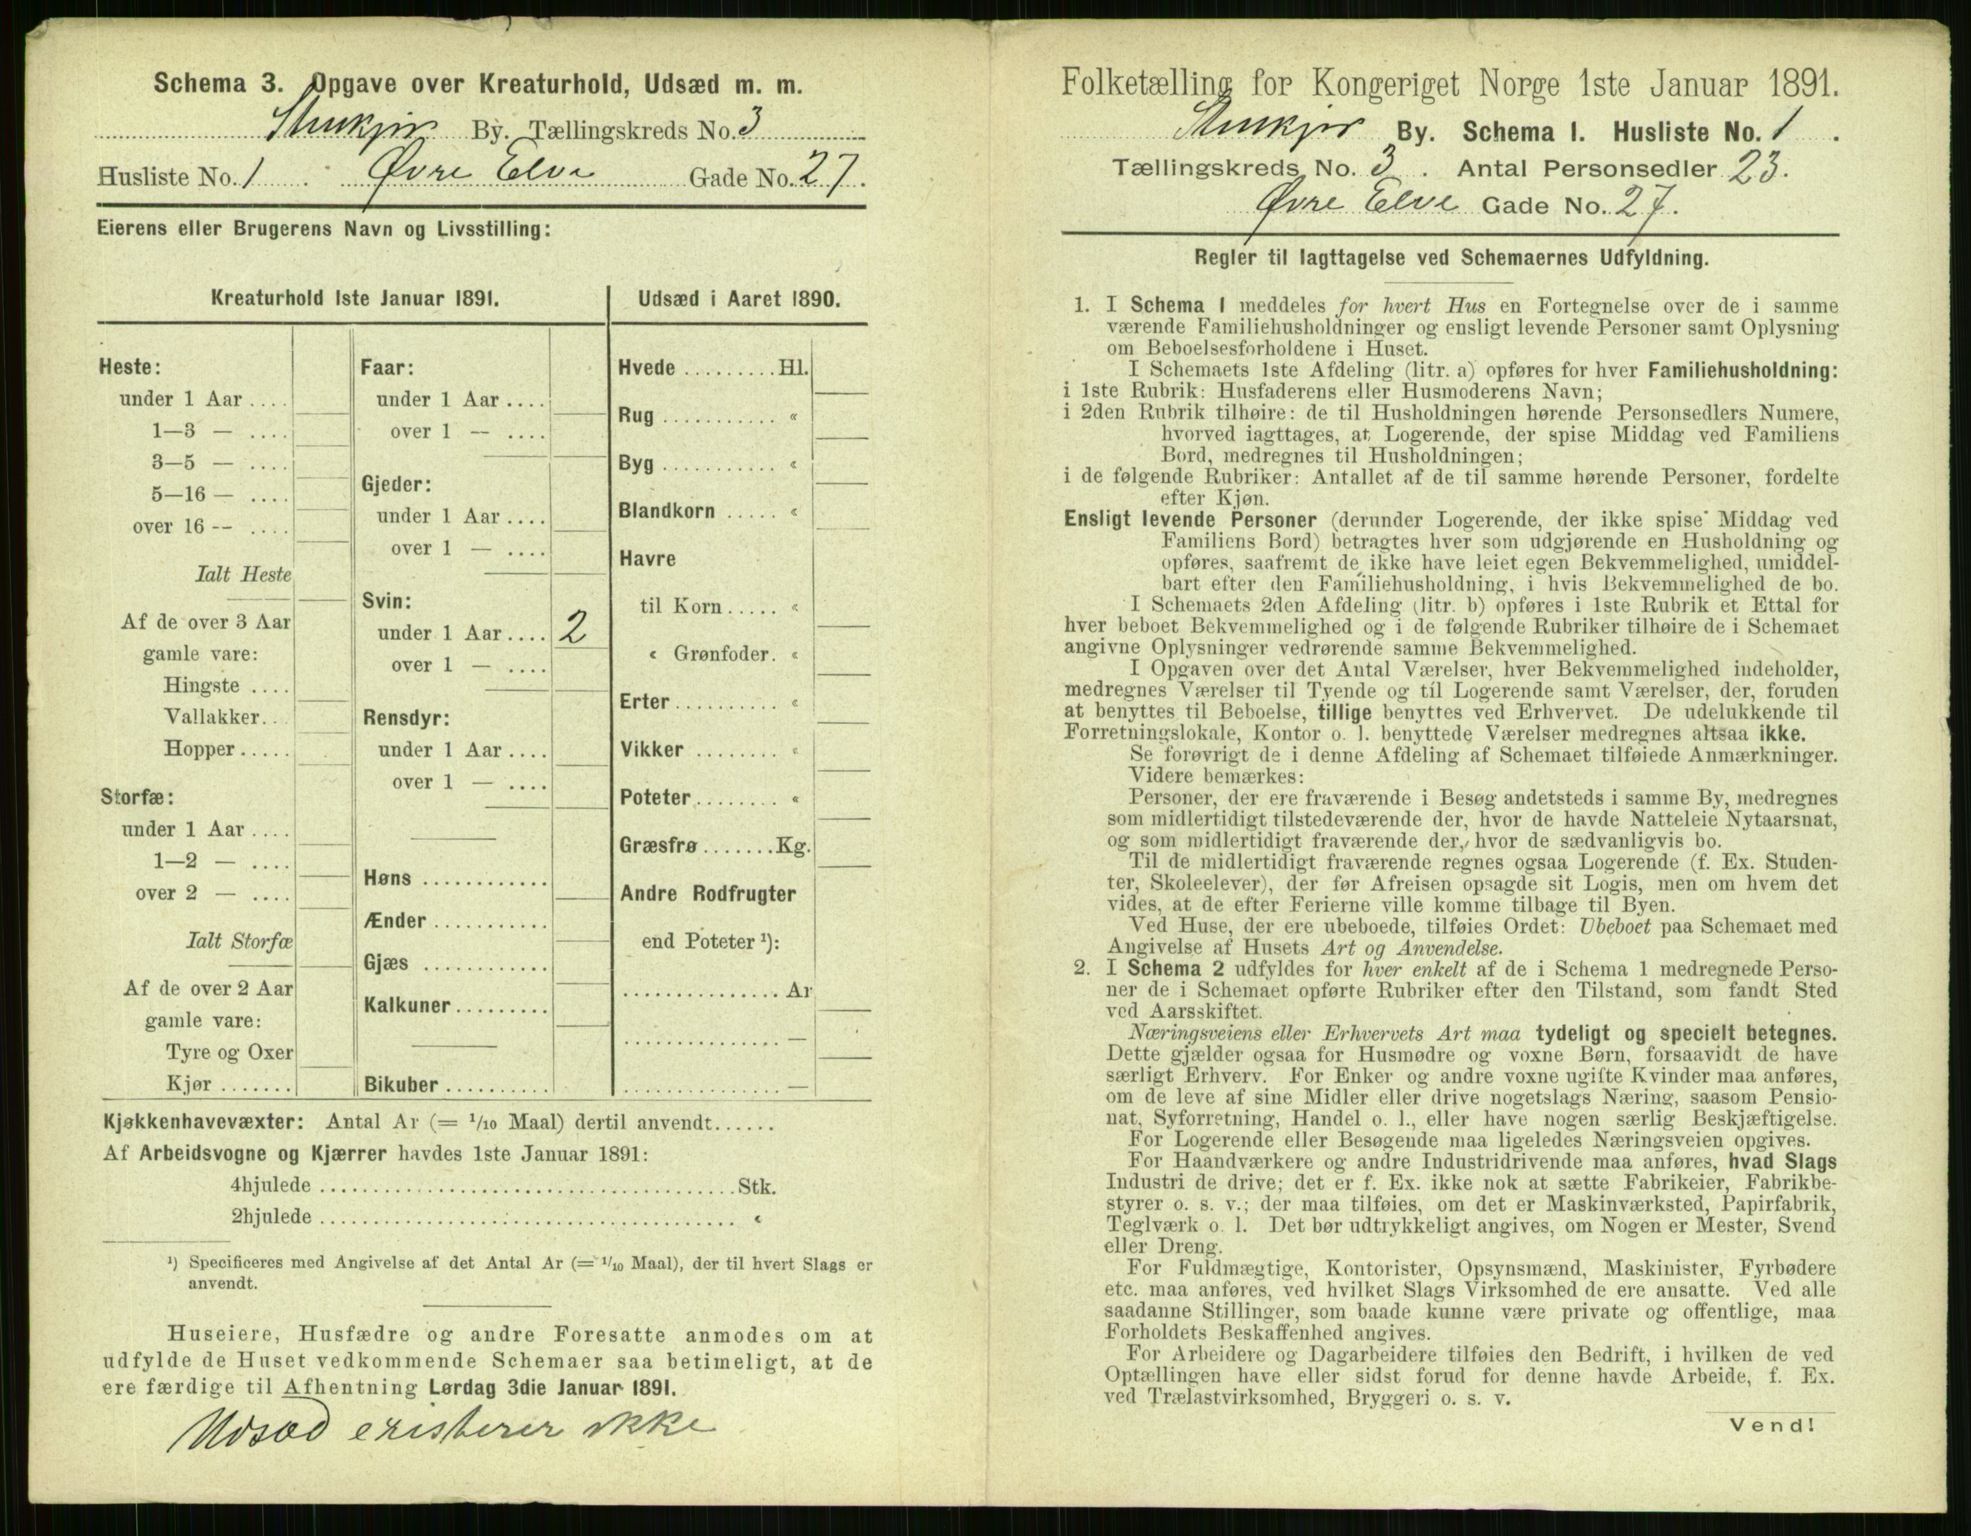 Schema 3. Opgave over Kreaturhold, Udsæd m. m.
Stenkjær By. Tællingskreds No. 3
Husliste No. 1 Øvre Elve Gade No. 27.
Eierens eller Brugerens Navn og Livsstilling:
Kreaturhold 1ste Januar 1891.
Heste:
under 1 Aar ....
1—3 — ....
3—5 — ....
5—16 — ....
over 16 — ....
Ialt Heste
Af de over 3 Aar
gamle vare:
Hingste ....
Vallakker..
Hopper.....
Storfæ:
under 1 Aar ....
1—2 — ....
over 2 — ....
Ialt Storfæ
Af de over 2 Aar
gamle vare:
Tyre og Oxer
Kjør .......
Faar:
under 1 Aar ....
over 1 — ....
Gjeder:
under 1 Aar ....
over 1 — ....
Svin:
under 1 Aar .... 2
over 1 — ....
Rensdyr:
under 1 Aar ....
over 1 — ....
Høns ............
Ænder ...........
Gjæs ............
Kalkuner.........
Bikuber ..........
Udsæd i Aaret 1890.
Hvede .........Hl.
Rug ........... «
Byg ........... «
Blandkorn ..... «
Havre
til Korn ..... «
« Grønfoder. «
Erter.......... «
Vikker ........ «
Poteter........ «
Græsfrø .......Kg.
Andre Rodfrugter
end Poteter ¹):
............... Ar
............... —
............... —
Kjøkkenhavevæxter: Antal Ar (= 1/10 Maal) dertil anvendt......
Af Arbeidsvogne og Kjærrer havdes 1ste Januar 1891:
4hjulede ........................................Stk.
2hjulede ........................................ «
¹) Specificeres med Angivelse af det Antal Ar (= 1/10 Maal), der til hvert Slags er
anvendt.
Huseiere, Husfædre og andre Foresatte anmodes om at
udfylde de Huset vedkommende Schemaer saa betimeligt, at de
ere færdige til Afhentning Lørdag 3die Januar 1891.
Udsæd existerer ikke
Folketælling for Kongeriget Norge 1ste Januar 1891.
Stenkjær By. Schema 1. Husliste No. 1.
Tællingskreds No. 3. Antal Personsedler 23.
Øvre Elve Gade No. 27.
Regler til Iagttagelse ved Schemaernes Udfyldning.
1. I Schema 1 meddeles for hvert Hus en Fortegnelse over de i samme
værende Familiehusholdninger og ensligt levende Personer samt Oplysning
om Beboelsesforholdene i Huset.
I Schemaets 1ste Afdeling (litr. a) opføres for hver Familiehusholdning:
i 1ste Rubrik: Husfaderens eller Husmoderens Navn;
i 2den Rubrik tilhøire: de til Husholdningen hørende Personsedlers Numere,
hvorved iagttages, at Logerende, der spise Middag ved Familiens
Bord, medregnes til Husholdningen;
i de følgende Rubriker: Antallet af de til samme hørende Personer, fordelte
efter Kjøn.
Ensligt levende Personer (derunder Logerende, der ikke spise Middag ved
Familiens Bord) betragtes hver som udgjørende en Husholdning og
opføres, saafremt de ikke have leiet egen Bekvemmelighed, umiddel-
bart efter den Familiehusholdning, i hvis Bekvemmelighed de bo.
I Schemaets 2den Afdeling (litr. b) opføres i 1ste Rubrik et Ettal for
hver beboet Bekvemmelighed og i de følgende Rubriker tilhøire de i Schemaet
angivne Oplysninger vedrørende samme Bekvemmelighed.
I Opgaven over det Antal Værelser, hver Bekvemmelighed indeholder,
medregnes Værelser til Tyende og til Logerende samt Værelser, der, foruden
at benyttes til Beboelse, tillige benyttes ved Erhvervet. De udelukkende til
Forretningslokale, Kontor o. l. benyttede Værelser medregnes altsaa ikke.
Se forøvrigt de i denne Afdeling af Schemaet tilføiede Anmærkninger.
Videre bemærkes:
Personer, der ere fraværende i Besøg andetsteds i samme By, medregnes
som midlertidigt tilstedeværende der, hvor de havde Natteleie Nytaarsnat,
og som midlertidigt fraværende der, hvor de sædvanligvis bo.
Til de midlertidigt fraværende regnes ogsaa Logerende (f. Ex. Studen-
ter, Skoleelever), der før Afreisen opsagde sit Logis, men om hvem det
vides, at de efter Ferierne ville komme tilbage til Byen.
Ved Huse, der ere ubeboede, tilføies Ordet: Ubeboet paa Schemaet med
Angivelse af Husets Art og Anvendelse.
2. I Schema 2 udfyldes for hver enkelt af de i Schema 1 medregnede Perso-
ner de i Schemaet opførte Rubriker efter den Tilstand, som fandt Sted
ved Aarsskiftet.
Næringsveiens eller Erhvervets Art maa tydeligt og specielt betegnes.
Dette gjælder ogsaa for Husmødre og voxne Børn, forsaavidt de have
særligt Erhverv. For Enker og andre voxne ugifte Kvinder maa anføres,
om de leve af sine Midler eller drive nogetslags Næring, saasom Pensio-
nat, Syforretning, Handel o. l., eller have nogen særlig Beskjæftigelse.
For Logerende eller Besøgende maa ligeledes Næringsveien opgives.
For Haandværkere og andre Industridrivende maa anføres, hvad Slags
Industri de drive; det er f. Ex. ikke nok at sætte Fabrikeier, Fabrikbe-
styrer o. s. v.; der maa tilføies, om det er Maskinværksted, Papirfabrik,
Teglværk o. l. Det bør udtrykkeligt angives, om Nogen er Mester, Svend
eller Dreng.
For Fuldmægtige, Kontorister, Opsynsmænd, Maskinister, Fyrbødere
etc. maa anføres, ved hvilket Slags Virksomhed de ere ansatte. Ved alle
saadanne Stillinger, som baade kunne være private og offentlige, maa
Forholdets Beskaffenhed angives.
For Arbeidere og Dagarbeidere tilføies den Bedrift, i hvilken de ved
Optællingen have eller sidst forud for denne havde Arbeide, f. Ex.
ved Trælastvirksomhed, Bryggeri o. s. v.
Vend!